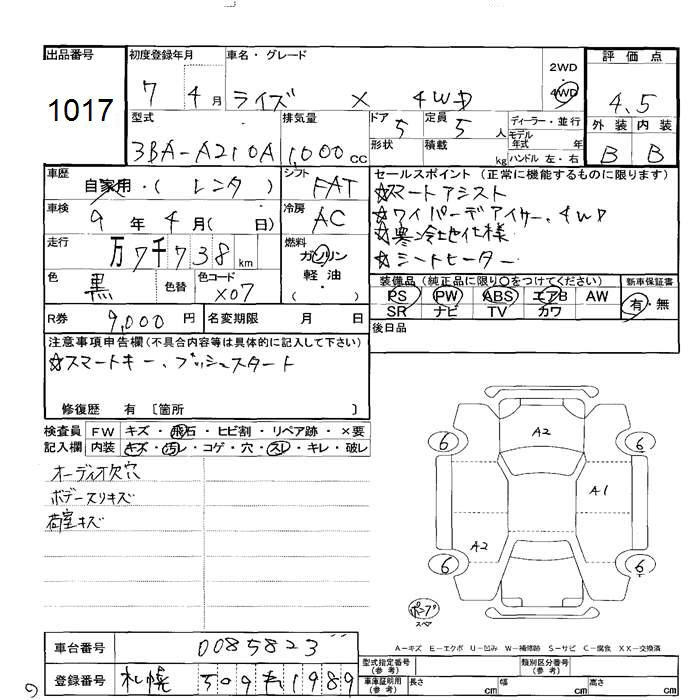 出品番号
1017
初度登録年月
7 4月
車名・グレード
ライズ X 4WD
2WD
4WD
評価点
4.5
型式
3BA-A210A
排気量
1,000cc
ドア 5
形状
定員 5人
積載 kg
ディーラー・並行
モデル年式 年式
ハンドル 左・右
外装 内装
B B
車歴
自家用・( レンタ )
シフト
FAT
車検
9年4月( 日)
冷房
AC
走行
万7千738km
燃料
ガソリン
軽油
( ・ )
色
黒
色替
色コード
X07
R券
9,000円
名変期限 月 日
セールスポイント(正常に機能するものに限ります)
☆スマートアシスト
☆ワイパーデアイサー、4WD
☆寒冷地仕様
☆シートヒーター
装備品(純正品に限り○をつけてください)
PS PW ABS エアB AW
SR ナビ TV カワ
新車保証書
有・無
後日品
注意事項申告欄(不具合内容等は具体的に記入して下さい)
☆スマートキー、プッシュスタート
修復歴 有 〔箇所 〕
検査員記入欄
FW キズ・飛石・ヒビ割・リペア跡・×要
内装 キズ・汚レ・コゲ・穴・スレ・キレ・破レ
オーディオ欠穴
ボデースリキズ
荷室キズ
A2
6 6
A1
A2
6 6
A-キズ E-エクボ U-凹み W-補修跡 S-サビ C-腐食 XX-交換済
車台番号
0085823
登録番号
札幌
型式指定番号(参考)
類別区分番号(参考)
車庫証明用(参考) 長さ cm 幅 cm 高さ cm